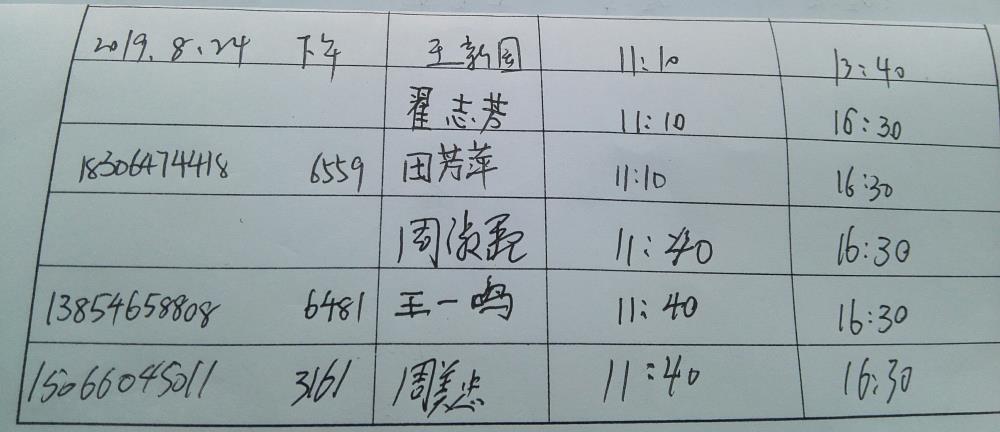 2019.8.24 下午 王新国 11:10 13:40
翟志芳 11:10 16:30
18306474418 6559 田芳萍 11:10 16:30
周淑 11:40 16:30
13854658808 6481 王一鸣 11:40 16:30
15066045011 3161 周美 11:40 16:30